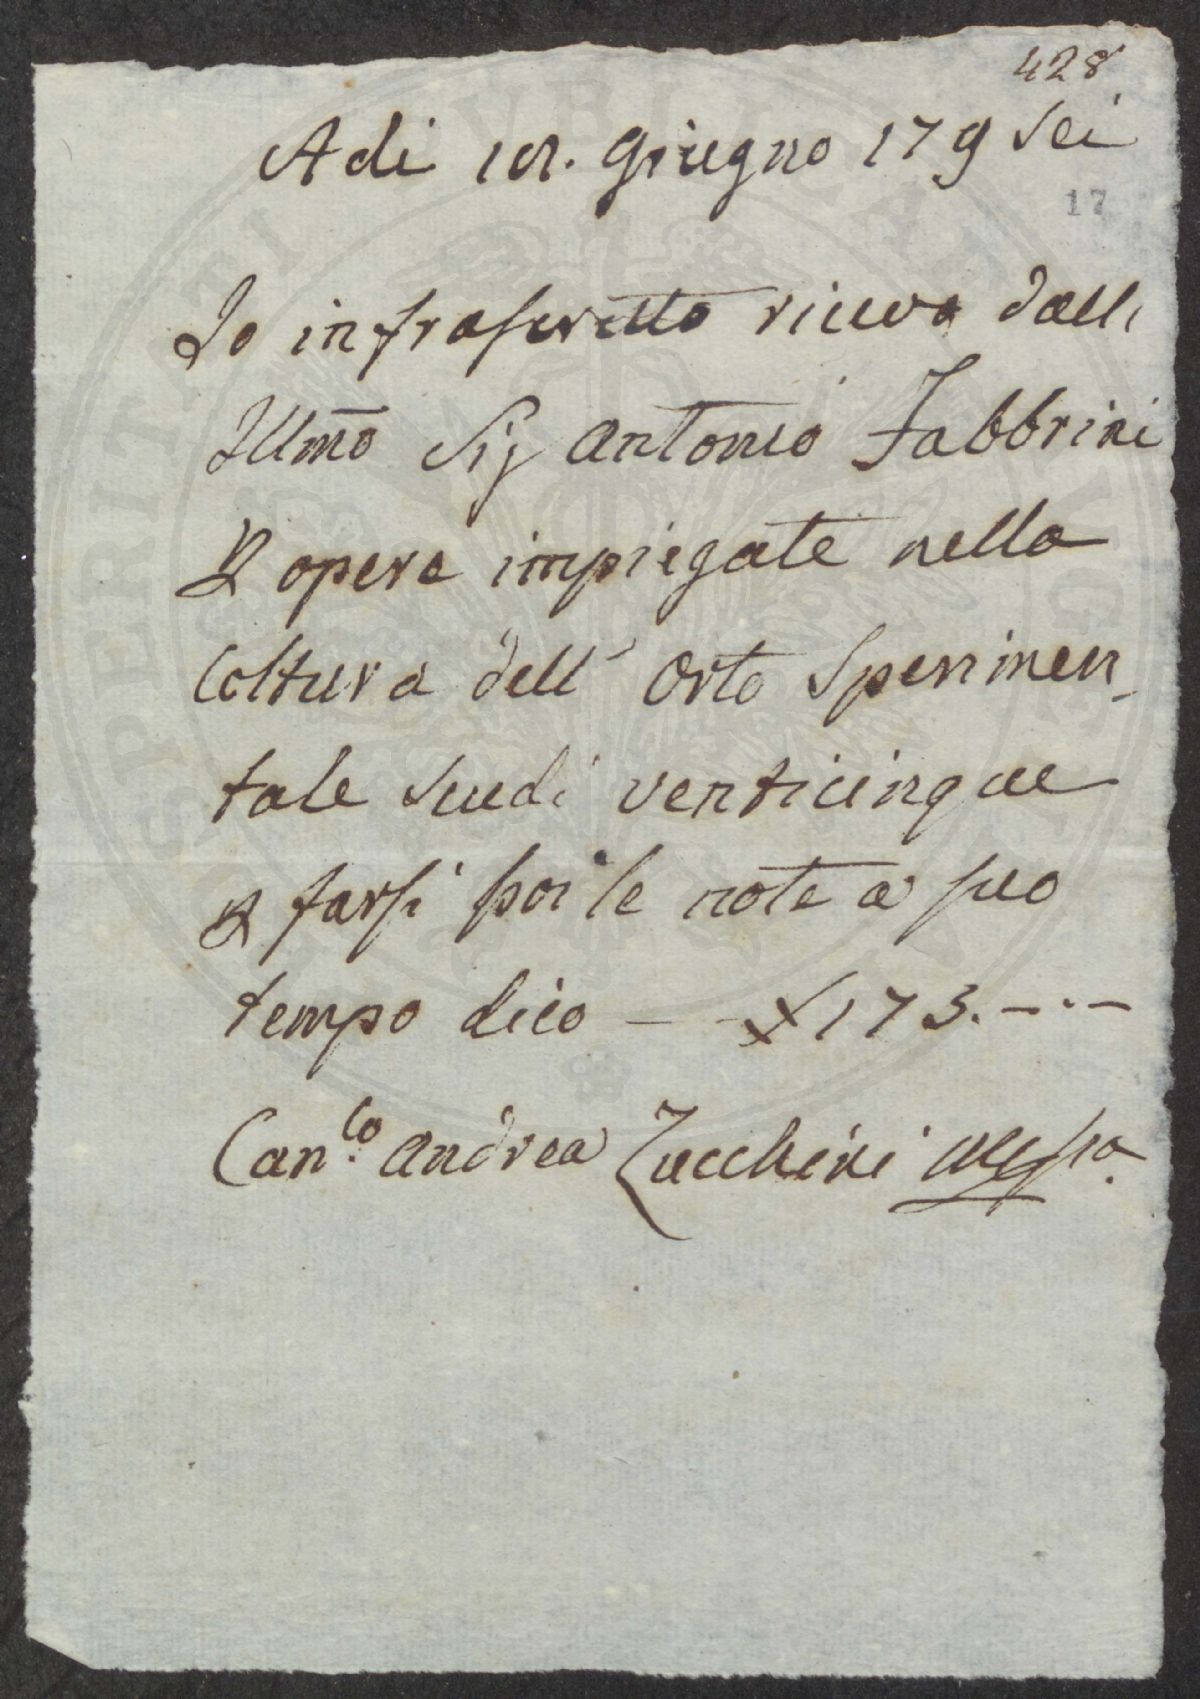 428
Adi 18. Giugno 179 Sei
17
Io infrascritto ricevo dall
Illmo Sig Antonio Fabbrini
P opere impiegate nella
Coltura dell' Orto Sperimen_
tale Scudi venticinque
P farsi poi le note a suo
tempo dico — - £ 175. - · -
Can.co Andrea Zucchini